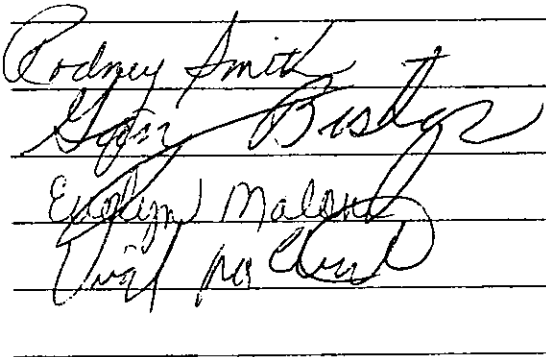 Rodney Smith
Gary Bishop
Evelyn Malone